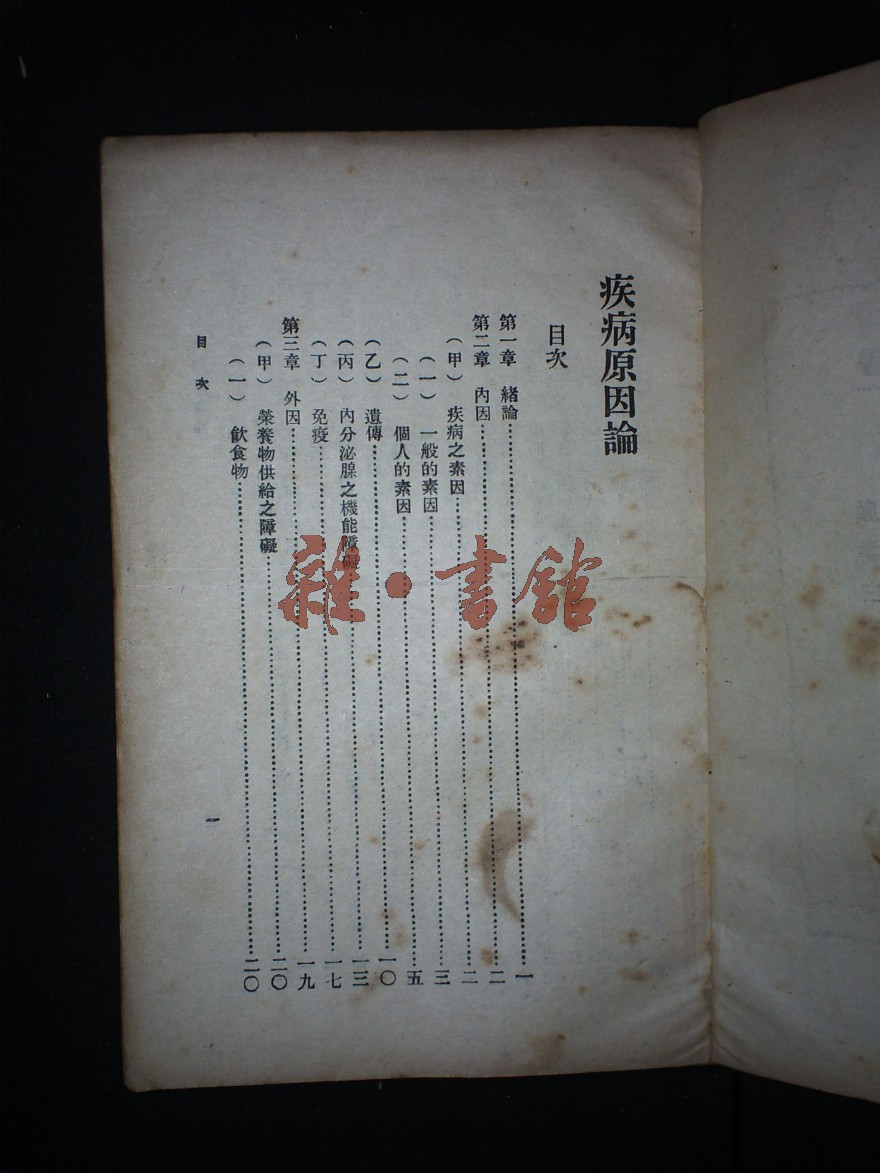 疾病原因論
目次
第一章 緒論…………一
第二章 內因…………二
(甲) 疾病之素因…………二
(一) 一般的素因…………三
(二) 個人的素因…………五
(乙) 遺傳…………一〇
(丙) 內分泌腺之機能障礙…………一三
(丁) 免疫…………一七
第三章 外因…………一九
(甲) 榮養物供給之障礙…………二〇
(一) 飲食物…………二〇
目次
一
雜·書館